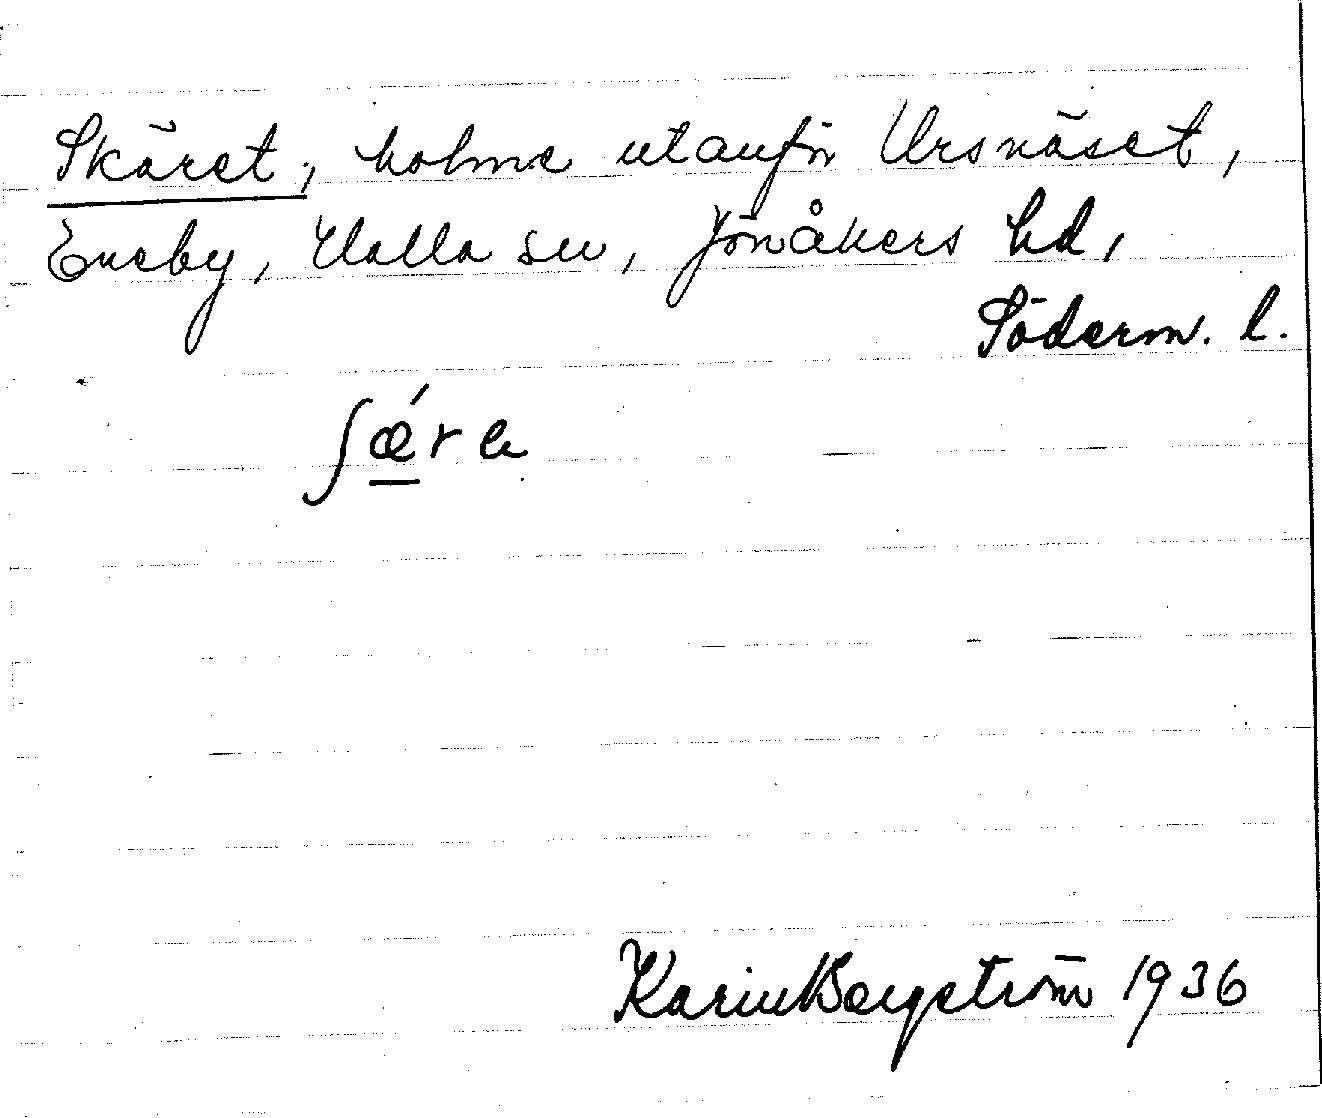 Skäret, holme utanför Ursnäset,
Eneby, Halla sn, Jönåkers hd,
Söderm. l.
ʃǽra
Karin Bergström 1936